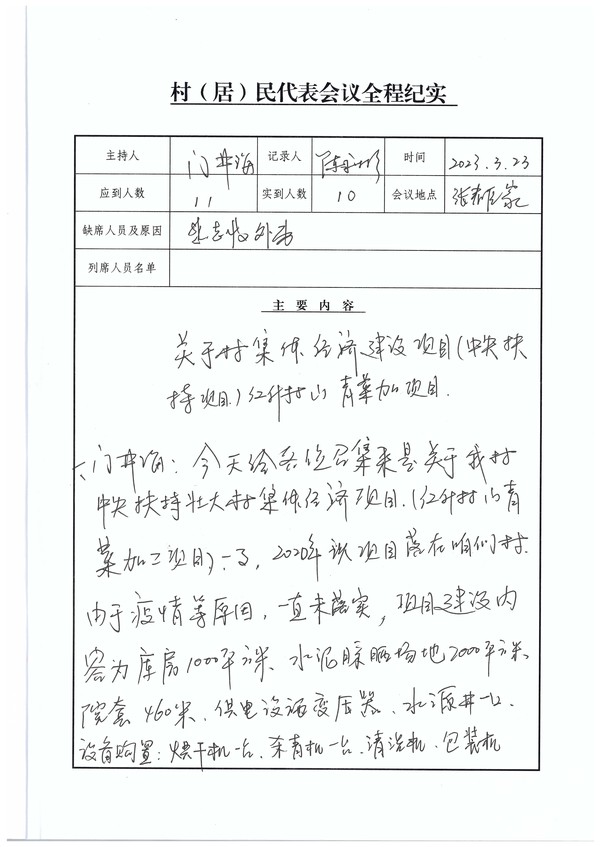 村（居）民代表会议全程纪实
主持人 门井海 记录人 时间 2023.3.23
应到人数 11 实到人数 10 会议地点 张 家
缺席人员及原因 外出
列席人员名单
主要内容
关于村集体经济建设项目(中央扶
持项目)红升村山青菜加项目.
门井海：今天给各位召集来是关于我村
中央扶持壮大村集体经济项目.(红升村山青
菜加工项目)一事,2020年该项目落在咱们村.
由于疫情等原因，一直未落实，项目建设内
容为库房1000平方米、水泥晾晒场地2000平方米、
院套460米、供电设施变压器、水源井一口.
设备购置：烘干机一台、杀青机一台、清洗机、包装机